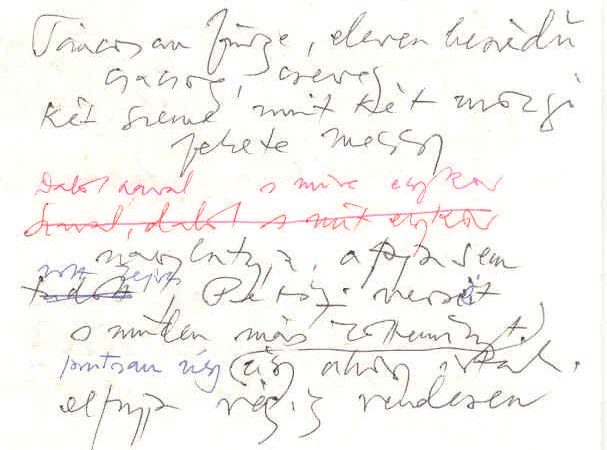 Táncosan fürge, eleven beszédű
csacsog, cseveg
két szeme mint két mozgó
fekete meggy
Dalol, szaval s mire egykor
szaval, dalol s mit egykor
nagyatyja, apja sem
volt
Petőfi versét
s minden más költeményt.
pontosan úgy úgy ahogy írták.
elfújja végig rendesen